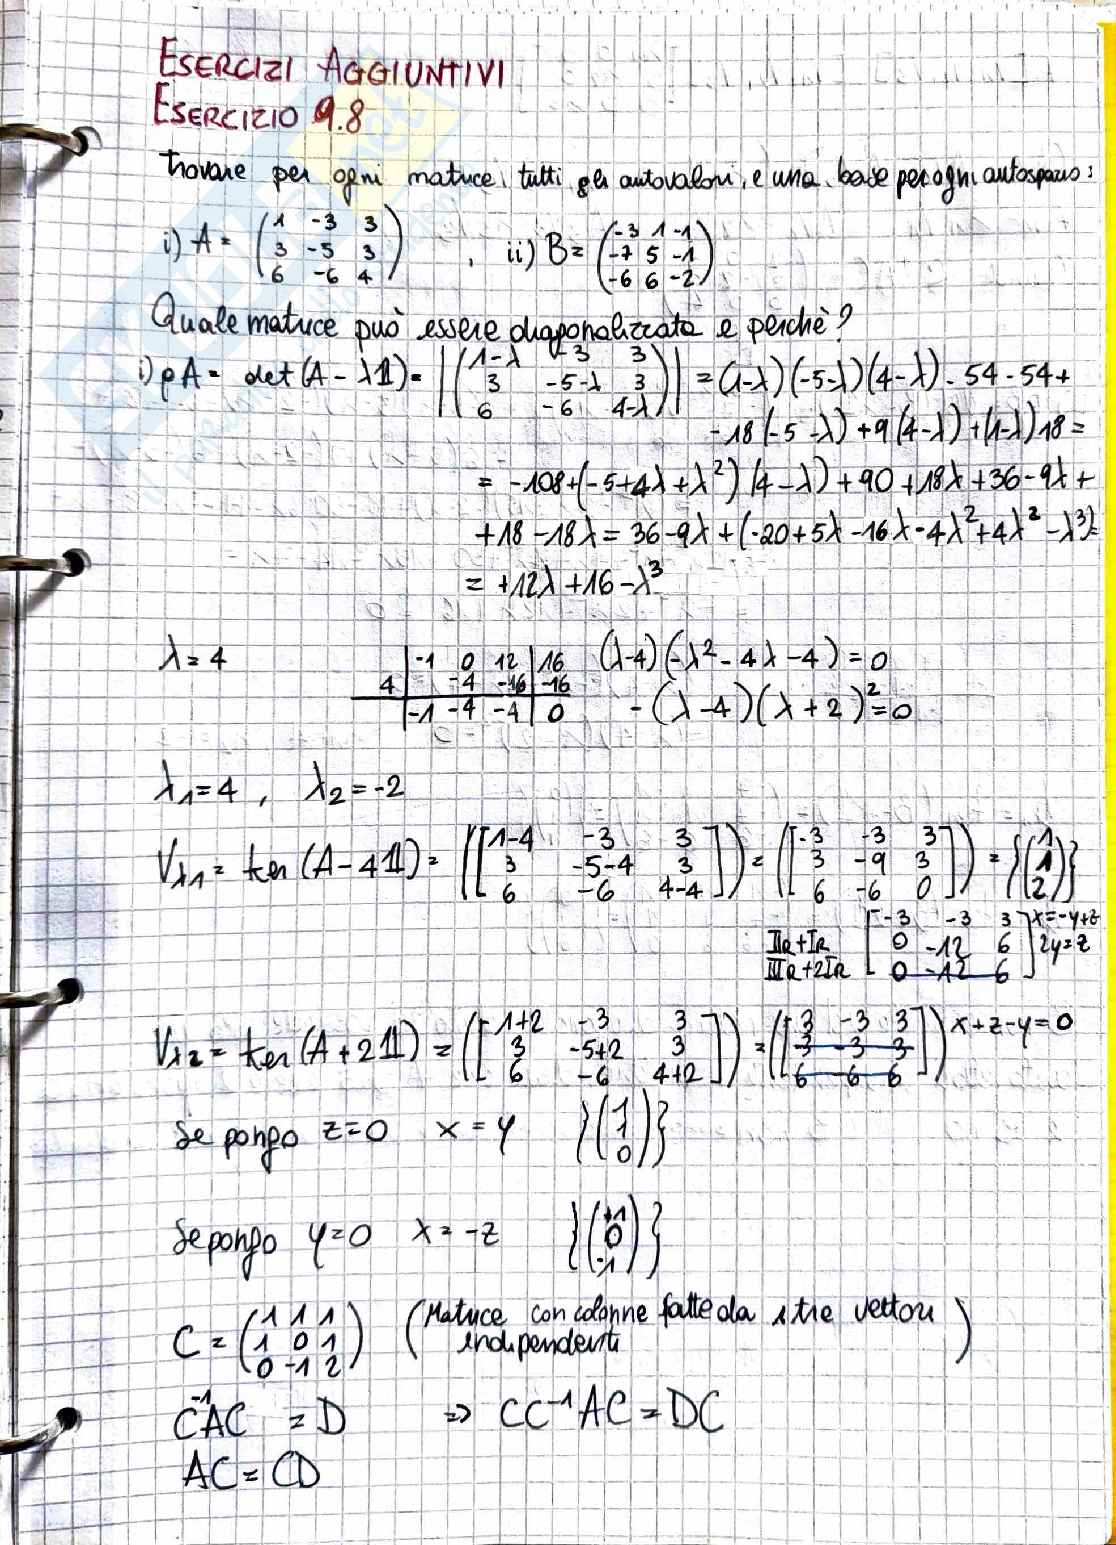 ESERCIZI AGGIUNTIVI
ESERCIZIO 9.8
trovare per ogni matrice, tutti gli autovalori, e una base per ogni autospazio:
i) A = (1 -3 3 / 3 -5 3 / 6 -6 4) , ii) B = (-3 1 -1 / -7 5 -1 / -6 6 -2)
Quale matrice può essere diagonalizzata e perchè?
i) pA = det(A - λ1) = |(1-λ -3 3 / 3 -5-λ 3 / 6 -6 4-λ)| = (1-λ)(-5-λ)(4-λ) - 54 - 54 +
-18(-5-λ) + 9(4-λ) + (1-λ)18 =
= -108 + (-5+4λ+λ²)(4-λ) + 90 + 18λ + 36 - 9λ +
+18 - 18λ = 36 - 9λ + (-20 + 5λ - 16λ - 4λ² + 4λ² - λ³) =
= +12λ + 16 - λ³
λ = 4
-1 0 12 16
4 -4 -16 -16
-1 -4 -4 0
(λ-4)(-λ² - 4λ - 4) = 0
-(λ-4)(λ+2)² = 0
λ1 = 4 , λ2 = -2
Vλ1 = ker(A - 41) = ([1-4 -3 3 / 3 -5-4 3 / 6 -6 4-4]) = ([-3 -3 3 / 3 -9 3 / 6 -6 0]) = {(1 / 1 / 2)}
IIR + IR
IIIR + 2IR
[-3 -3 3 / 0 -12 6 / 0 -12 6] x = -y+z
2y = z
Vλ2 = ker(A + 21) = ([1+2 -3 3 / 3 -5+2 3 / 6 -6 4+2]) = ([3 -3 3 / 3 -3 3 / 6 -6 6]) x+z-y = 0
Se pongo z = 0 x = y {(1 / 1 / 0)}
Se pongo y = 0 x = -z {(+1 / 0 / -1)}
C = (1 1 1 / 1 0 1 / 0 -1 2) (Matrice con colonne fatte da i tre vettori
indipendenti)
C⁻¹AC = D ⇒ CC⁻¹AC = DC
AC = CD